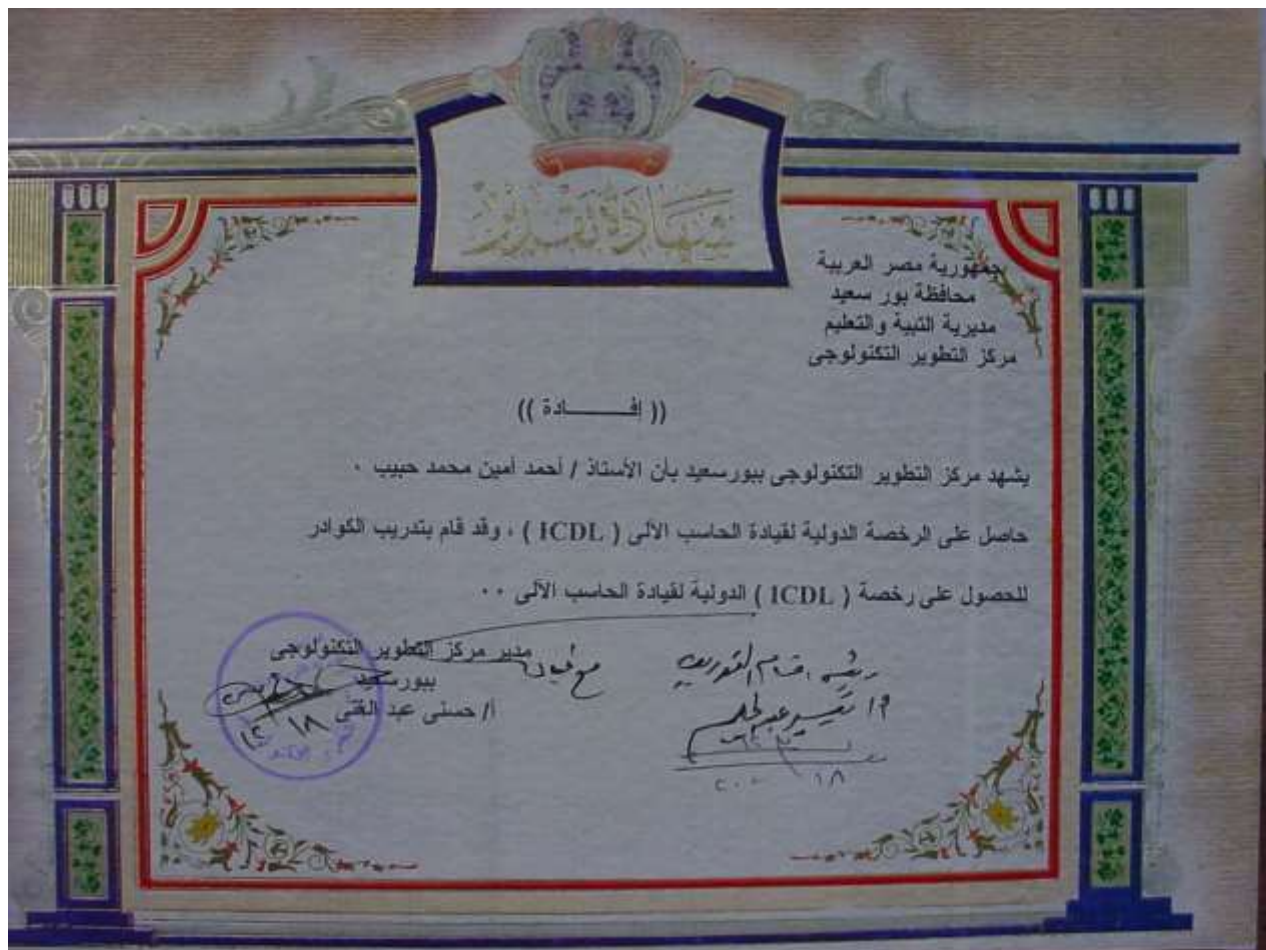 شهادة تقدير
جمهورية مصر العربية
محافظة بور سعيد
مديرية التبية والتعليم
مركز التطوير التكنولوجى
(( إفــــــــادة ))
يشهد مركز التطوير التكنولوجى ببورسعيد بأن الأستاذ / أحمد أمين محمد حبيب ٠
حاصل على الرخصة الدولية لقيادة الحاسب الآلى ( ICDL ) ، وقد قام بتدريب الكوادر
للحصول على رخصة ( ICDL ) الدولية لقيادة الحاسب الآلى ٠٠
مدير مركز التطوير التكنولوجى
ببورسعيد
أ/ حسنى عبد الغنى